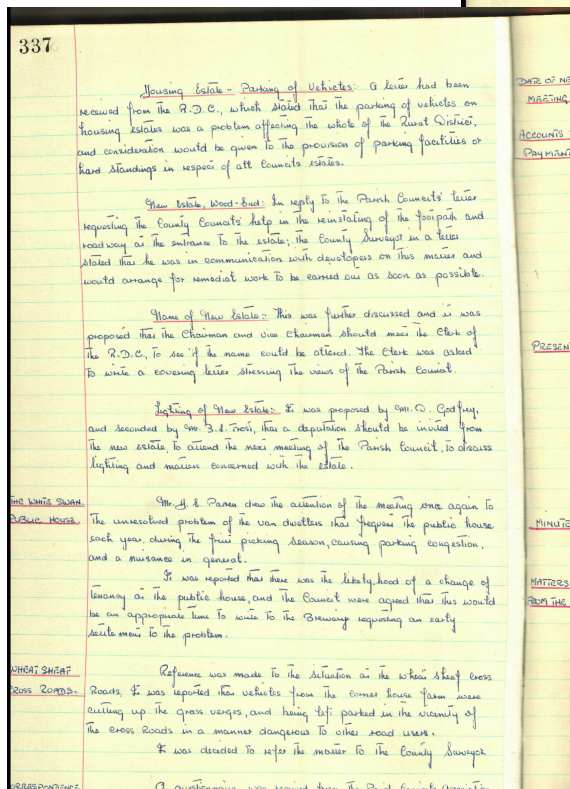 337
Housing Estate - Parking of Vehicles: A letter had been
received from the R.D.C., which stated that the parking of vehicles on
housing estates was a problem affecting the whole of the Rural District,
and consideration would be given to the provision of parking facilities or
hard standings in respect of all Councils estates.
New Estate, Wood-End: In reply to the Parish Councils' letter
requesting the County Councils' help in the reinstating of the footpath and
roadway at the entrance to the estate; the County Surveyor in a letter
stated that he was in communication with developers on this matter and
would arrange for remedial work to be carried out as soon as possible.
Name of New Estate:- This was further discussed and it was
proposed that the Chairman and vice Chairman should meet the Clerk of
the R.D.C., to see if the name could be altered. The Clerk was asked
to write a covering letter stressing the views of the Parish Council.
Lighting of New Estate:- It was proposed by Mr. D. Godfrey,
and seconded by Mr. B.S. Frost, that a deputation should be invited from
the new estate, to attend the next meeting of the Parish Council, to discuss
lighting and matters concerned with the estate.
THE WHITE SWAN
PUBLIC HOUSE.
Mr. H. E. drew the attention of the meeting once again to
the unresolved problem of the van dwellers that frequent the public house
each year, during the fruit picking season, causing parking congestion,
and a nuisance in general.
It was reported that there was the likely hood of a change of
tenancy at the public house, and the Council were agreed that this would
be an appropriate time to write to the Brewery requesting an early
settlement to the problem.
WHEAT SHEAF
CROSS ROADS-
Reference was made to the situation at the wheat sheaf cross
Roads, It was reported that vehicles from the corner house farm were
cutting up the grass verges, and being left parked in the vicinity of
the cross Roads in a manner dangerous to other road users.
It was decided to refer the matter to the County Surveyor
CORRESPONDENCE
A questionnaire was received from the
DATE OF
MEETING.
ACCOUNTS
PAYMENT
PRESENT
MINUTE
MATTERS
FROM THE